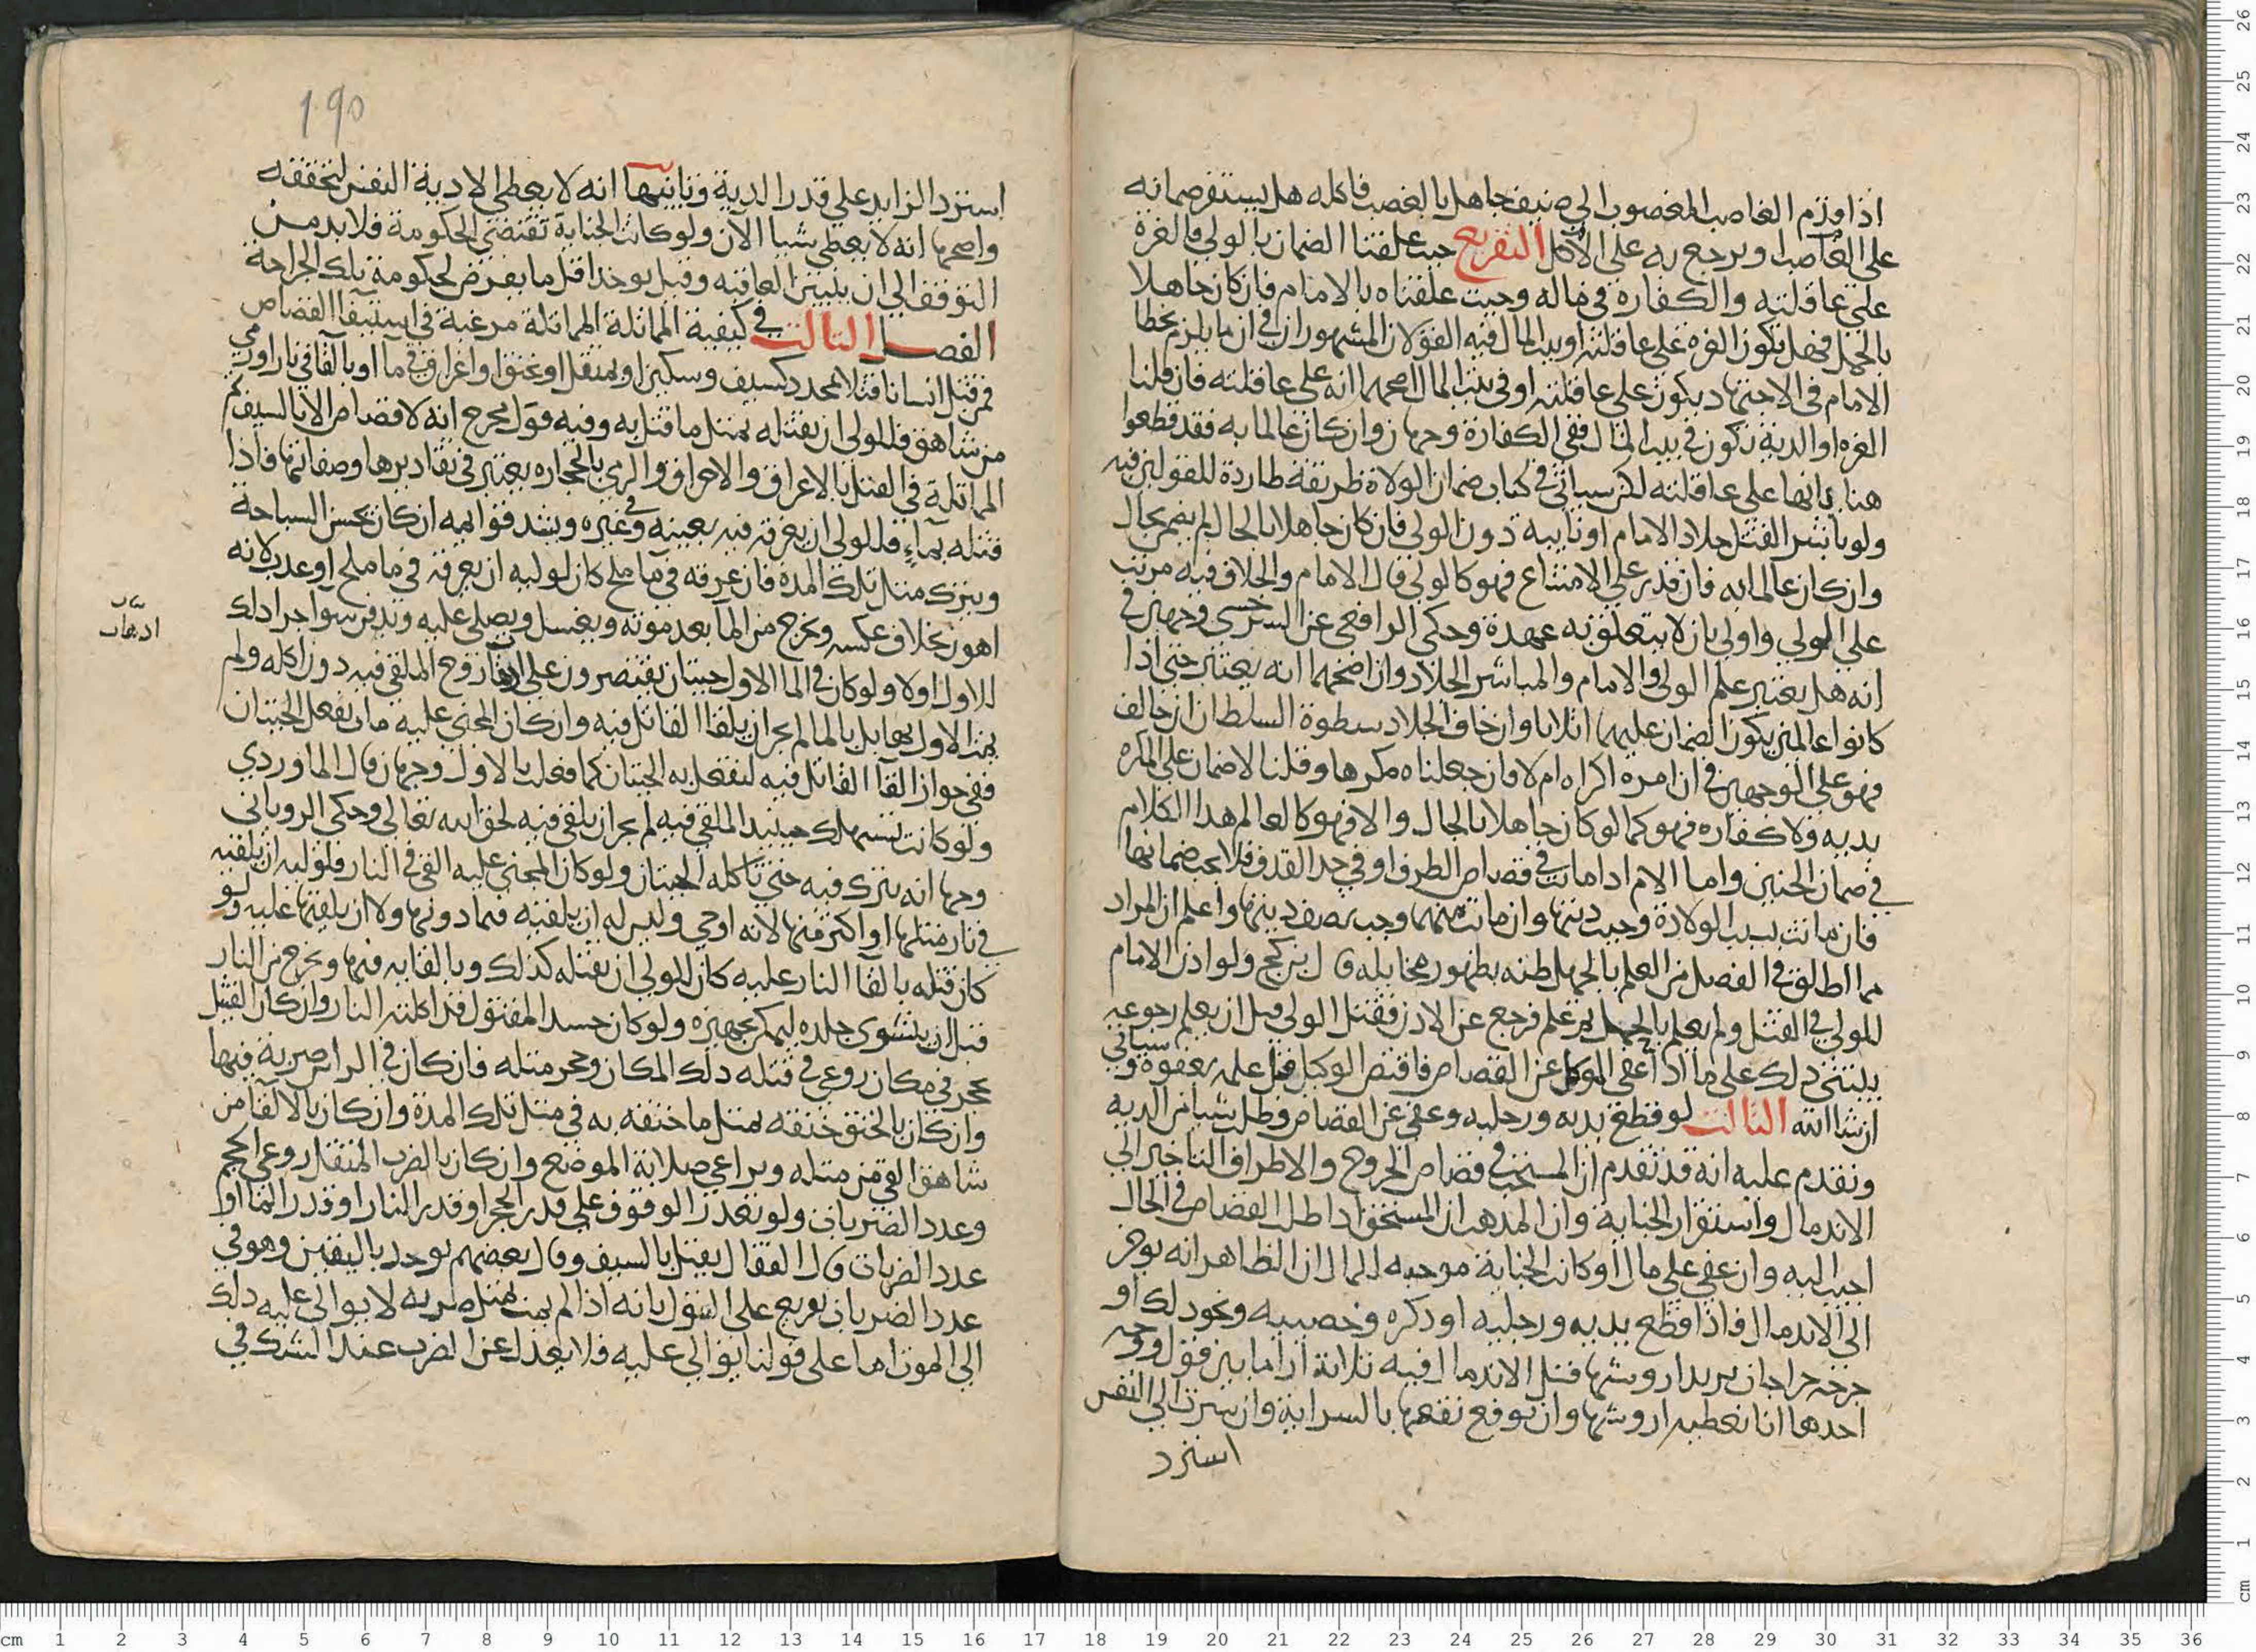 اذا قدم الغاصب المغصوب الى ضيف جاهل بالغصب فاكله هل يستقر ضمانه
على الغاصب او يرجع به على الآكل التفريع حيث علقنا الضمان بالولي فالغرة
على عاقلته والكفارة في ماله وحيث علقناه بالامام فان كان جاهلا
بالحمل فهل تكون الغرة على عاقلته او بيت المال فيه القولان المشهوران في ان ما يلزم بخطا
الامام في الاجتهاد يكون على عاقلته او في بيت المال اصحهما انه على عاقلته فان قلنا
الغرة او الدية تكون في بيت المال ففي الكفارة وجهان وان كان عالما به فقد قطعوا
هنا بانها على عاقلته لكن سياتي في كتاب ضمان الولاة طريقة طاردة للقولين فيه
ولو باشر القتل جلاد الامام او نايبه دون الولي فان كان جاهلا بالحال لم يضمن بحال
وان كان عالما به فان قدر على الامتناع فهو كالولي قال الامام والخلاف فيه مرتب
على الولي واولى بان لا يتعلق به عهدة وحكى الرافعي عن السرخسي وجهين في
انه هل يعتبر علم الولي والامام والمباشر الجلاد وان اصحهما انه يعتبر حتى اذا
كانوا عالمين يكون الضمان عليهم اثلاثا وان خاف الجلاد سطوة السلطان ان خالف
فهو على الوجهين في ان امره اكراه ام لا فان جعلناه مكرها وقلنا لا ضمان على المكره
بديه ولا كفارة فهو كما لو كان جاهلا بالحال والا فهو كالعالم هذا الكلام
في ضمان الجنين واما الام اذا ماتت في قصاص الطرف او في حد القذف فلا يجب ضمانها
فان ماتت بسبب الولادة وجبت ديتها وان ماتت منهما وجب نصف ديتها واعلم ان المراد
مما اطلق في الفصل من العلم بالحمل ظنه بظهور مخايله قال ابن كج ولو اذن الامام
للولي في القتل ولم يعلم بالحمل ثم علم فرجع عن الاذن فقتل الولي قبل ان يعلم رجوعه
يبتني ذلك على ما اذا عفى الموكل عن القصاص فاقتص الوكيل قبل علمه بعفوه وسياتي
ان شا الله الثالث لو قطع يديه ورجليه وعفى عن القصاص وطلب شيا من الدية
ونقدم عليه انه قد تقدم ان المستحب في قصاص الجروح والاطراف التاخير الى
الاندمال واستقرار الجناية وان المذهب ان المستحق اذا طلب القصاص في الحال
اجيب اليه وان عفى على مال او كانت الجناية موجبة للمال ان الظاهر انه يوخر
الى الاندمال فاذا قطع يديه ورجليه او ذكره وخصييه ونحو ذلك او
جرحه جراحات يزيد اروشها قبل الاندمال فيه ثلاثة ارا ما بين قول ووجه
احدها انا نعطيه اروشها وان توقع نقصها بالسراية وان سرت الى النفس
استرد
190
استرد الزايد على قدر الدية وثانيها انه لا يعطى الا دية النفس لتحققه
واصحها انه لا يعطى شيا الآن ولو كانت الجناية تقتضي الحكومة فلا بد من
التوقف الى ان يتبين العاقبة وقيل يوخذ اقل ما يفرض لحكومة تلك الجراحة
الفصل الثالث في كيفية المماثلة المماثلة مرعية في استيفا القصاص
فمن قتل انسانا قتلا بمحدد كسيف وسكين او بمثقل او بخنق او اغراق في ما او بالقا في نار او رمي
من شاهق فللولي ان يقتله بمثل ما قتل به وفيه قول مخرج انه لا قصاص الا بالسيف ثم
المماثلة في القتل بالاغراق والاحراق والرمي بالحجارة يعتبر في تقاديرها وصفاتها فاذا
قتله بماءٍ فللولي ان يغرقه فيه بعينه وفي غيره ويشد قوايمه ان كان يحسن السباحة
ويترك مثل تلك المدة فان غرقه في ما ملح كان لوليه ان يغرقه في ما ملح او عذب لانه
اهون بخلاف عكسه ويخرج من الما بعد موته ويغسل ويصلى عليه ويدفن سوا جرا ذلك
للاول او لا ولو كان في الما الاول حيتان يقتصرون على اذهاب روح الملقى فيه دون اكله ولم
يمت الاول بها بل بالما لم يجز ان يلقا القاتل فيه وان كان المجني عليه مات بفعل الحيتان
ففي جواز القا القاتل فيه لتفعل به الحيتان كما فعلت بالاول وجهان قال الماوردي
ولو كانت تستهلك حينيذ الملقى فيه لم يجز ان يلقى فيه لحق الله تعالى وحكى الروياني
وجها انه يترك فيه حتى تاكله الحيتان ولو كان المجني عليه القي في النار فلوليه ان يلقيه
في نار مثلها او اكثر منها لانه اوحى وليس له ان يلقيه فيما دونها ولا ان يلقيها عليه ولو
كان قتله بالقا النار عليه كان للولي ان يقتله كذلك وبالقايه فيها ويخرج من النار
قبل ان يشوى جلده ليمكن تجهيزه ولو كان جسد المقتول قد اكلته النار وان كان القتل
بحجر في مكان روعي في قتله ذلك المكان وحجر مثله فان كان في الراس ضربه فيها
وان كان بالخنق خنقه بمثل ما خنقه به في مثل تلك المدة وان كان بالالقا من
شاهق القي من مثله ويراعى صلابة الموضع وان كان بالضرب المثقل روعي الحجم
وعدد الضربات ولو تعذر الوقوف على قدر الحجر او قدر النار او قدر الما او
عدد الضربات قال القفال يقتل بالسيف وقال بعضهم يوخذ باليقين وهو في
عدد الضربات تفريع على القول بانه اذا لم يمت بمثل ضربه لا يوالى عليه ذلك
الى الموت اما على قولنا يوالى عليه فلا يعدل عن الضرب عند الشك في
اذهاب